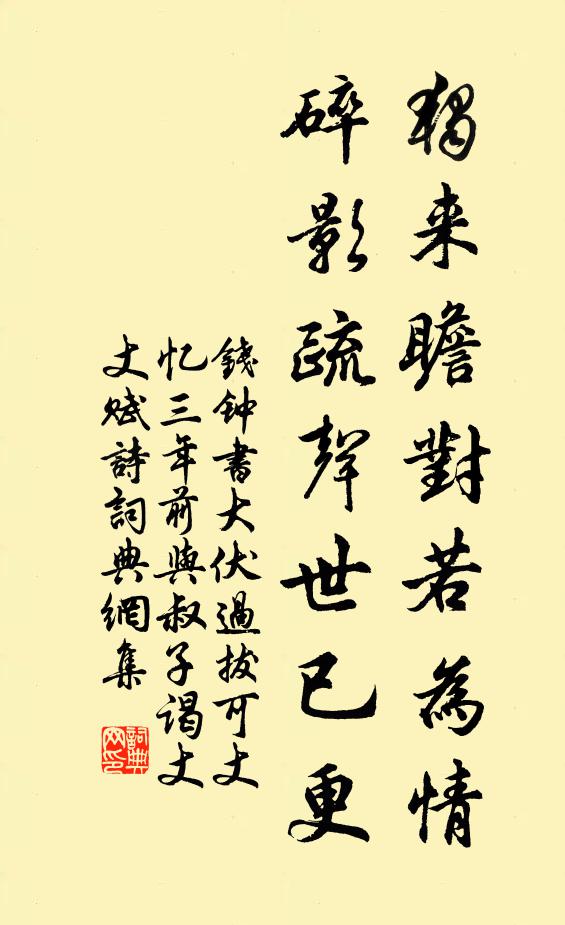 獨来瞻對若為情
碎影疏聲世已更
錢钟書大伏過拔可丈
忆三年前與叔子謁丈
丈赋詩詞典網集
詞典
网印